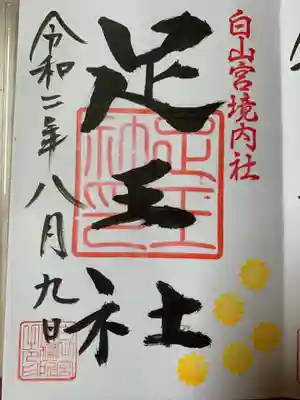 白山宮境内社
足王社
令和二年八月九日